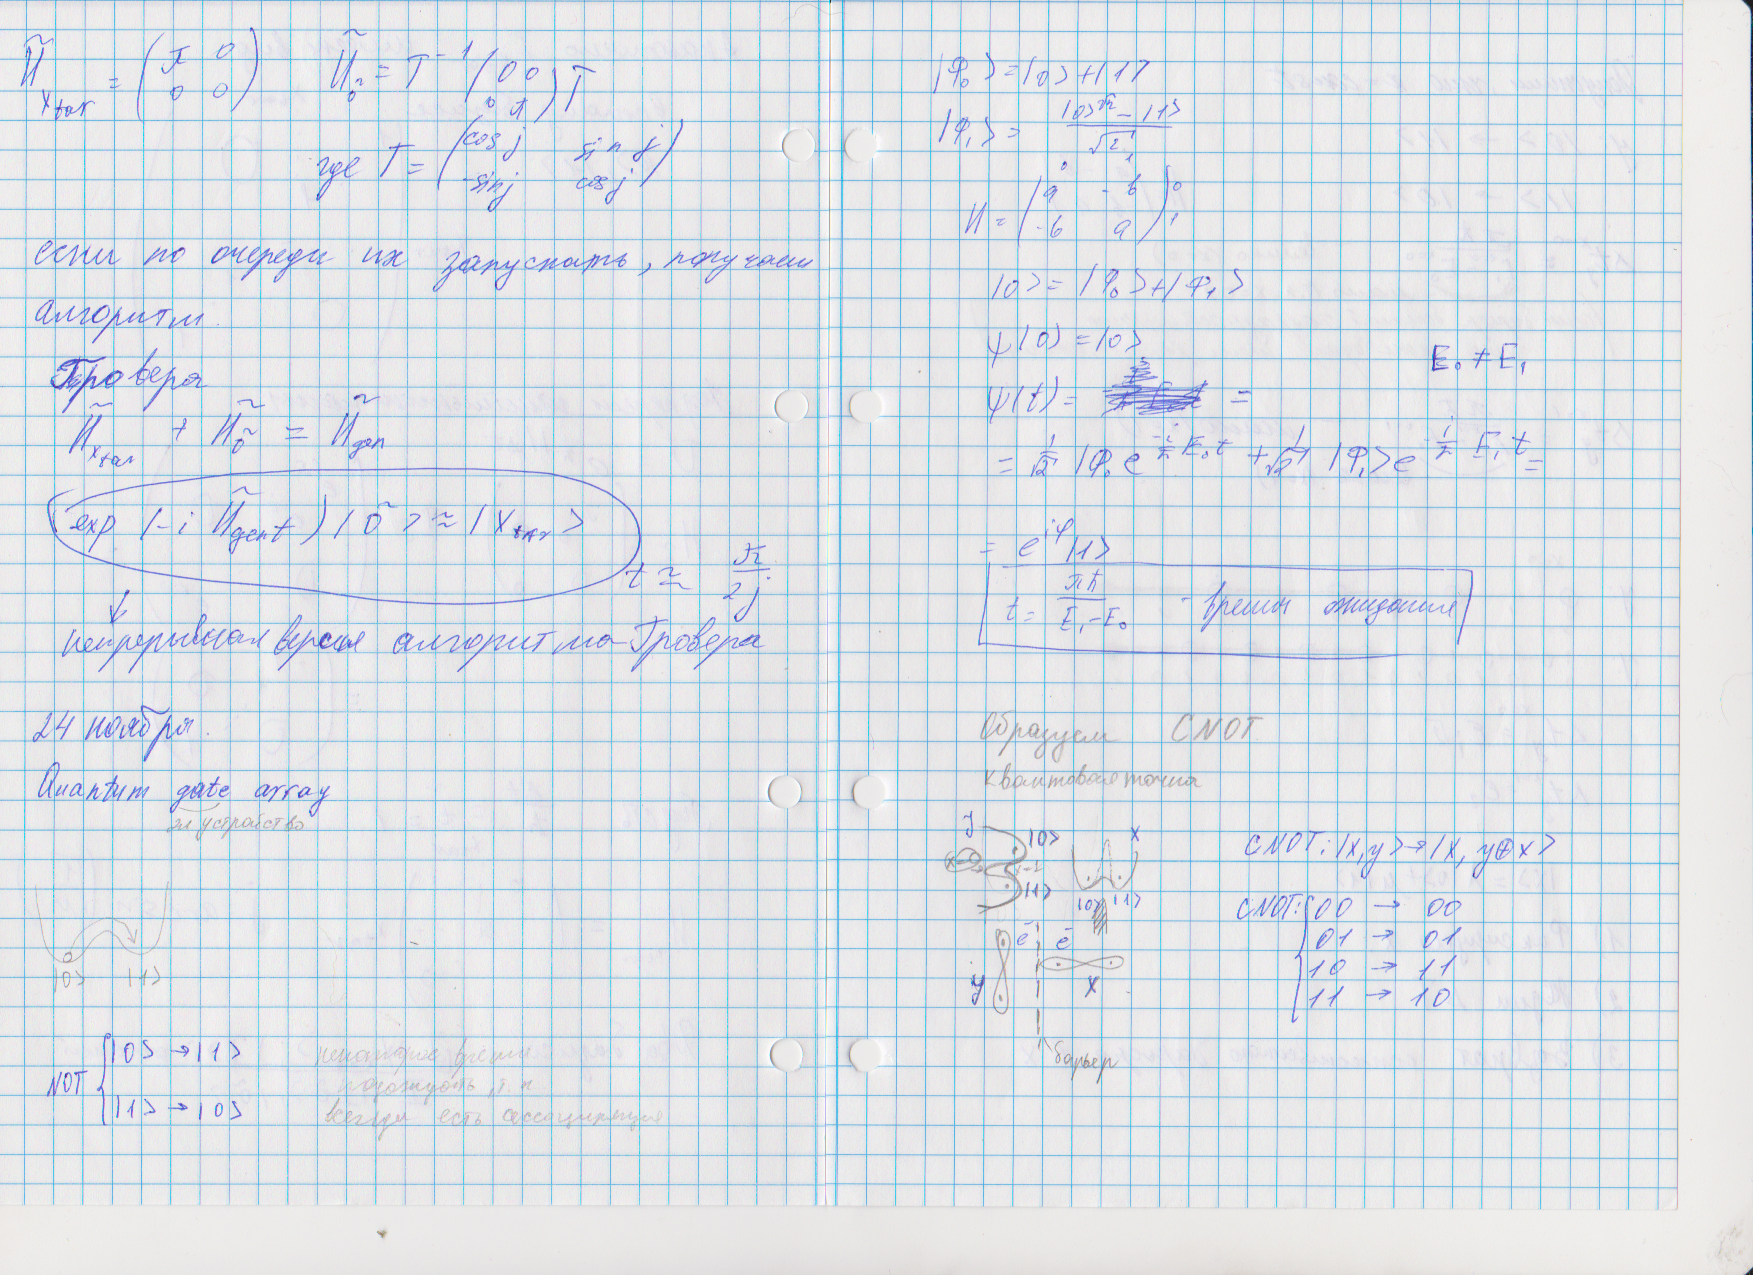 H̃_{x_{tar}} = (π 0 / 0 0)   H̃_{0̃} = T⁻¹ (0 0 / 0 π) T
где T = (cos j  sin j / -sin j  cos j)
если по очереди их запускать, получаем
алгоритм
Гровера
H̃_{x_{tar}} + H̃_{0̃} = H̃_{gen}
exp (-i H̃_{gen} t) |0̃> ≈ |x_{tar}>
t ≈ π/2j
непрерывная версия алгоритма Гровера
24 ноября.
Quantum gate array
эл устройство
|0> |1>
NOT { |0> → |1>
|1> → |0>
некоторое время
подождать, т.к.
всегда есть
|φ₀> = |0> + |1>
|φ₁> = (|0> - |1>)/√2
H = (a -b / -b a)
|0> = |φ₀> + |φ₁>
ψ(0) = |0>
E₀ ≠ E₁
ψ(t) = =
= 1/√2 |φ₀ e^{-i/ħ E₀t} + 1/√2 |φ₁> e^{-i/ħ E₁t} =
= e^{iφ} |1>
t = πħ/(E₁-E₀) - время ожидания
Образуем CNOT
квантовая точка
y |0> x
|1> |0> |1>
CNOT: |x,y> → |x, y⊕x>
CNOT: { 00 → 00
01 → 01
10 → 11
11 → 10
ē ē
y x
барьер